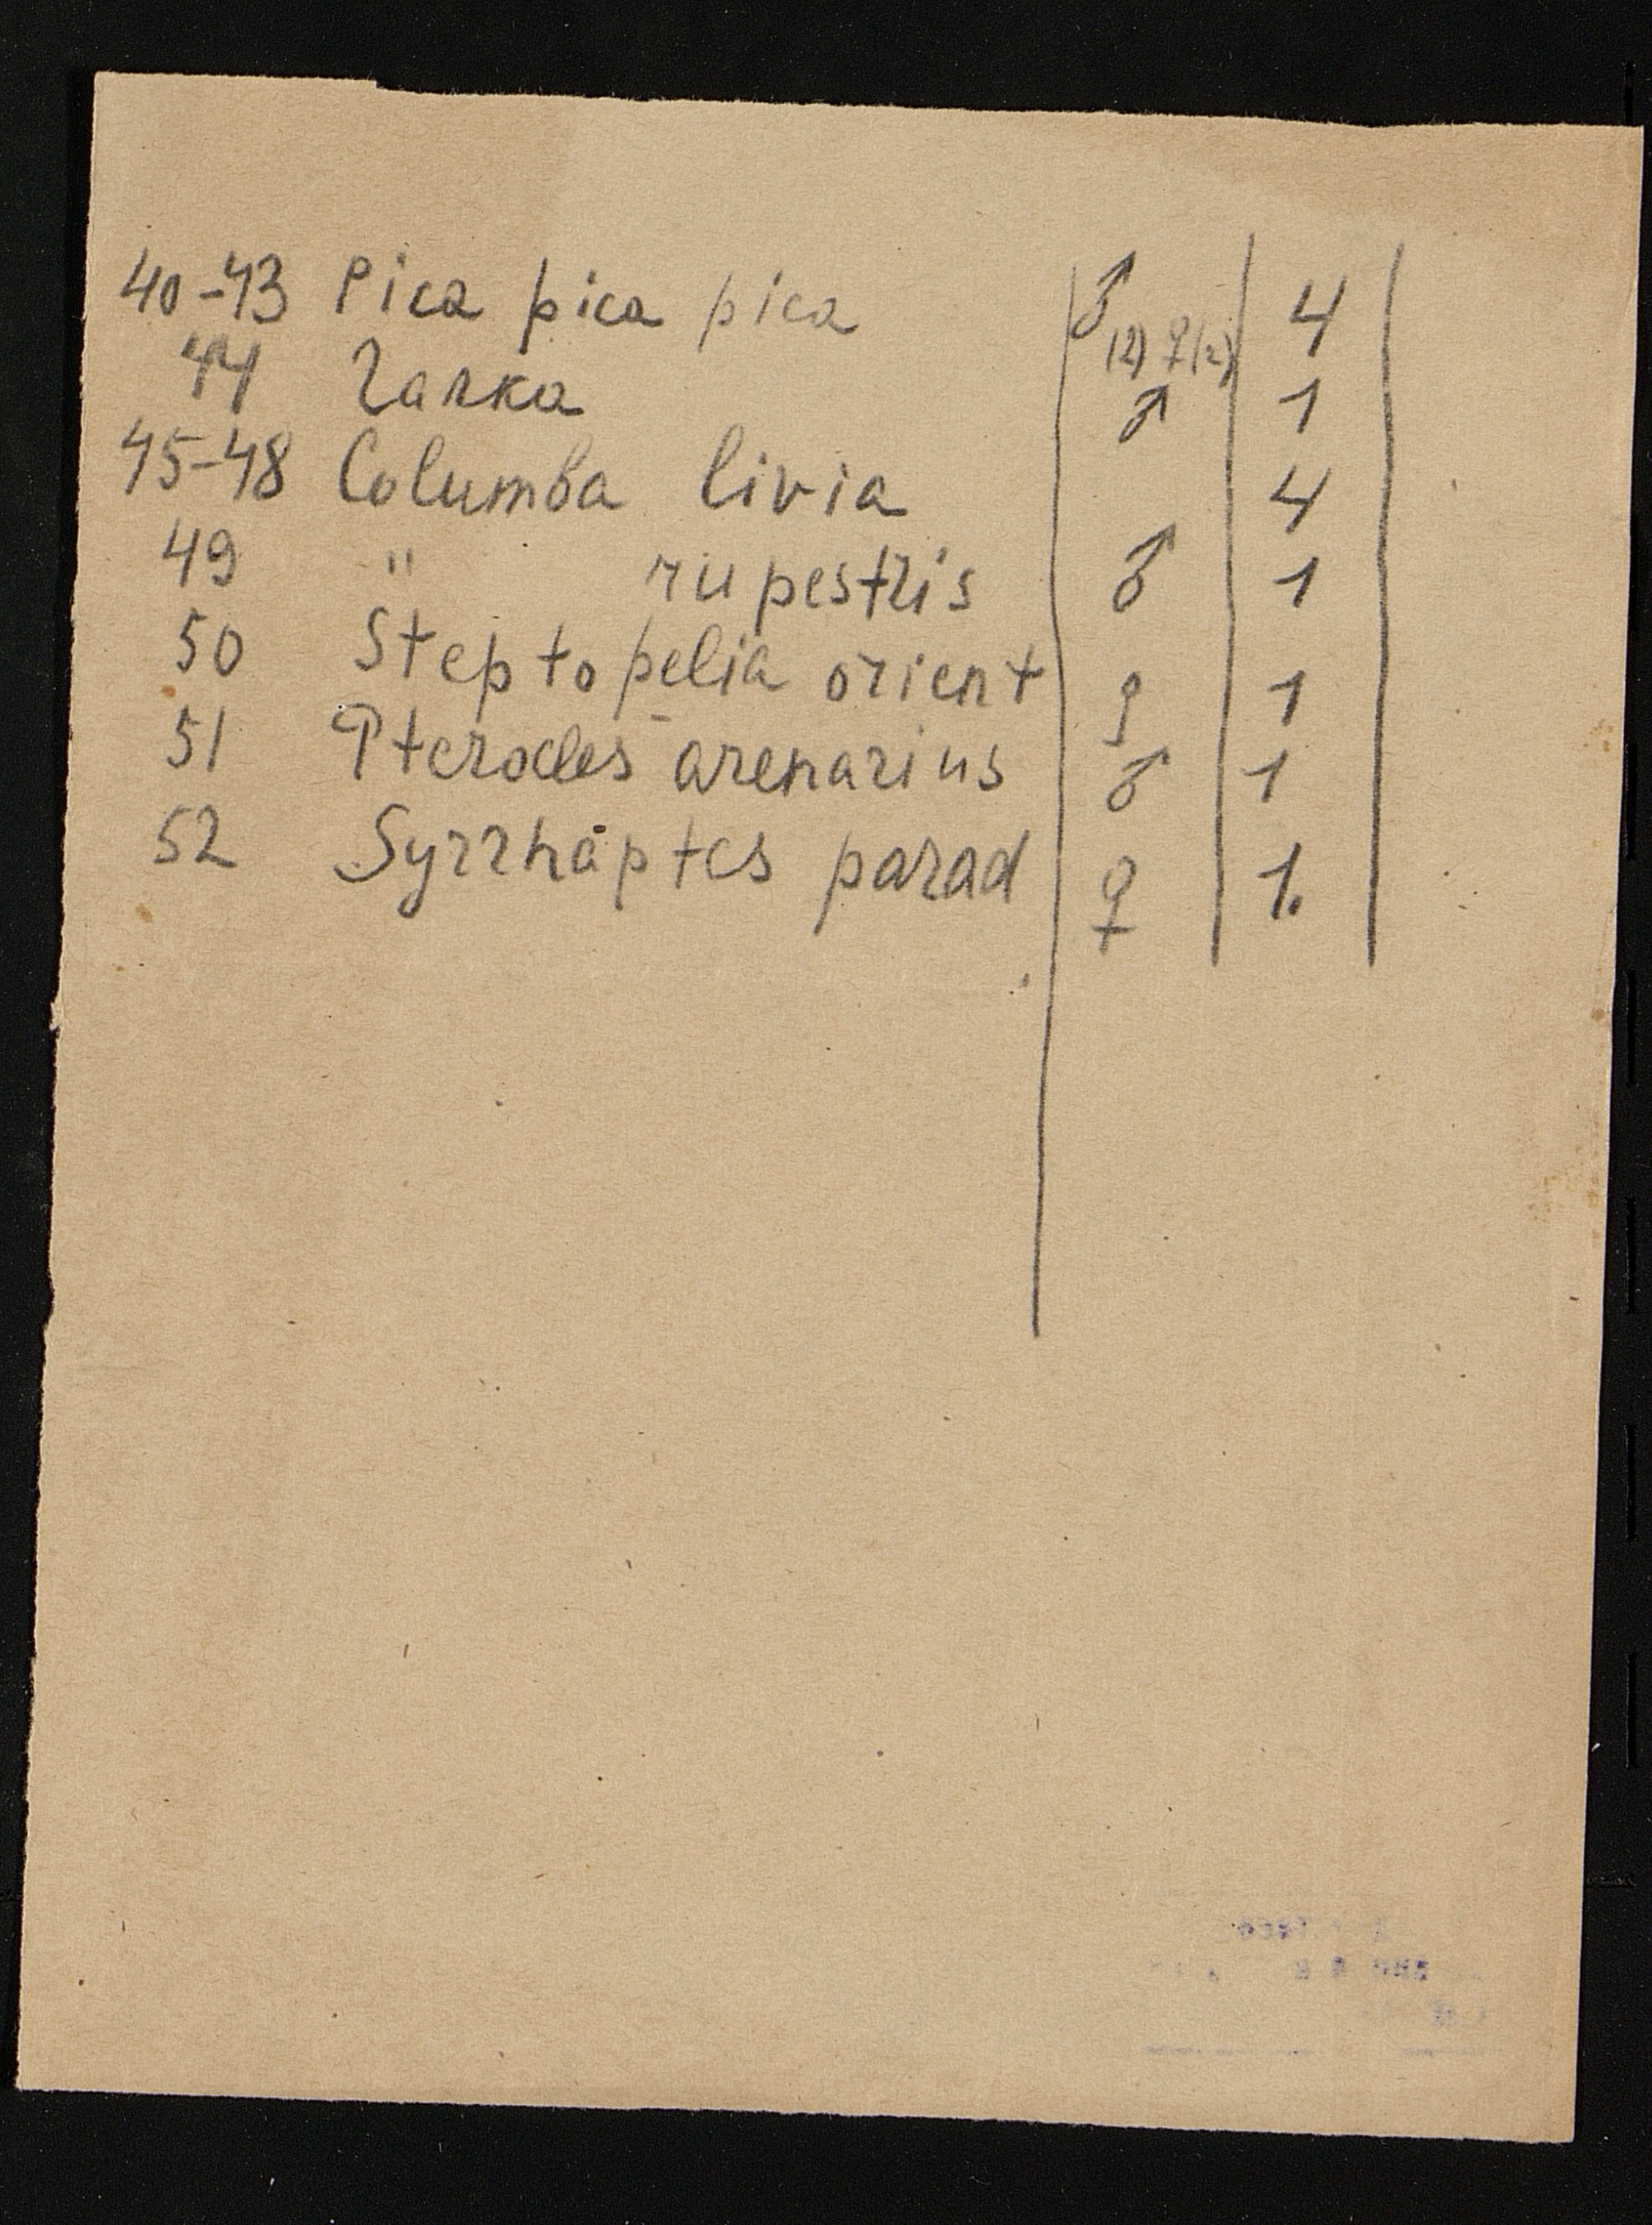 40-43 Pica pica pica ♂(2) ♀(2) 4
44 Галка ♂ 1
45-48 Columba livia 4
49 " rupestris ♂ 1
50 Steptopelia orient ♀ 1
51 Pterocles arenarius ♂ 1
52 Syrrhaptes parad ♀ 1.